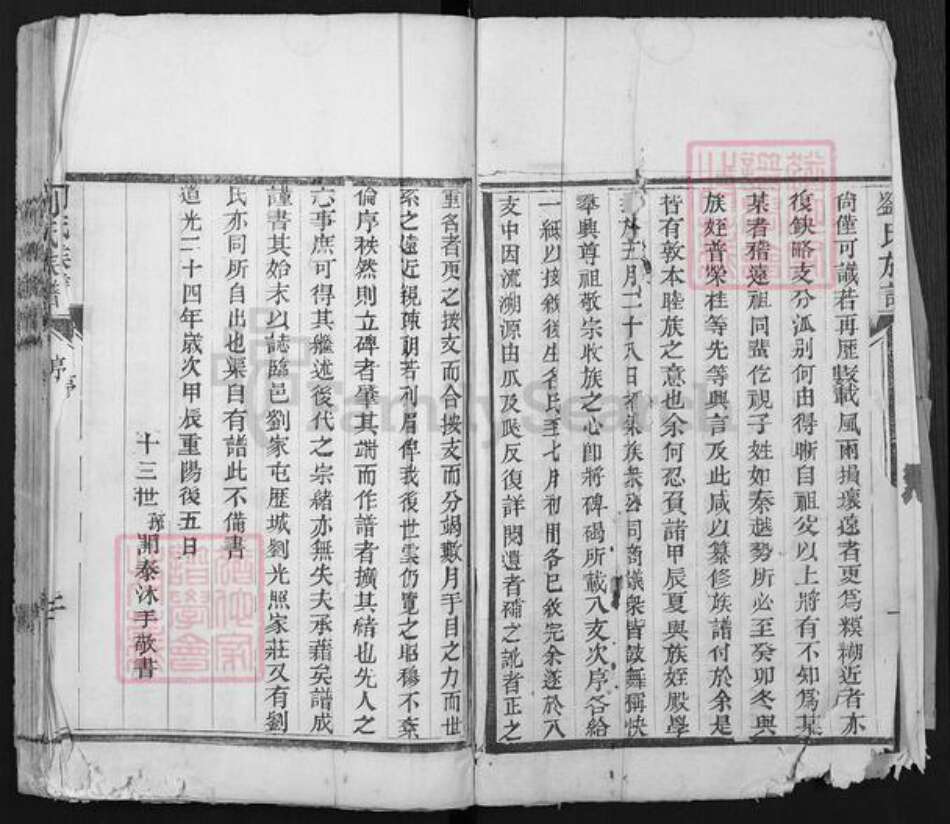 劉氏族譜
尚僅可識若再歷數載風雨損壞遠者更爲糢糊近者亦
復缺略支分派别何由得晰自祖父以上將有不知爲某
某者稽遠祖同輩仡視子姓如秦越勢所必至癸卯冬與
族姪普榮桂等先等興言及此咸以纂修族譜付於余是
皆有敦本睦族之意也余何忍負諸甲辰夏與族姪殿學
五月二十八日 族衆公司商議衆皆鼓舞稱快
舉興尊祖敬宗收族之心即將碑碣所載八支次序各給
一紙以按敘後生名氏至七月初間各已敘完余遂於八
支中因流溯源由瓜及瓞反復詳閱遺者補之訛者正之
重名者更之按支而合按支而分竭數月手目之力而世
系之遠近親疎朗若列眉俾我後世雲仍覽之昭穆不紊
倫序秩然則立碑者肇其端而作譜者擴其緒也先人之
事庶可得其繼述後代之宗緒亦無失夫承藉矣譜成
謹書其始末以誌臨邑劉家屯歷城劉光照家莊又有劉
氏亦同所自出也渠自有譜此不備書
道光二十四年歲次甲辰重陽後五日
十三世孫 開泰沐手敬書
氏族譜
序
二
FamilySearch